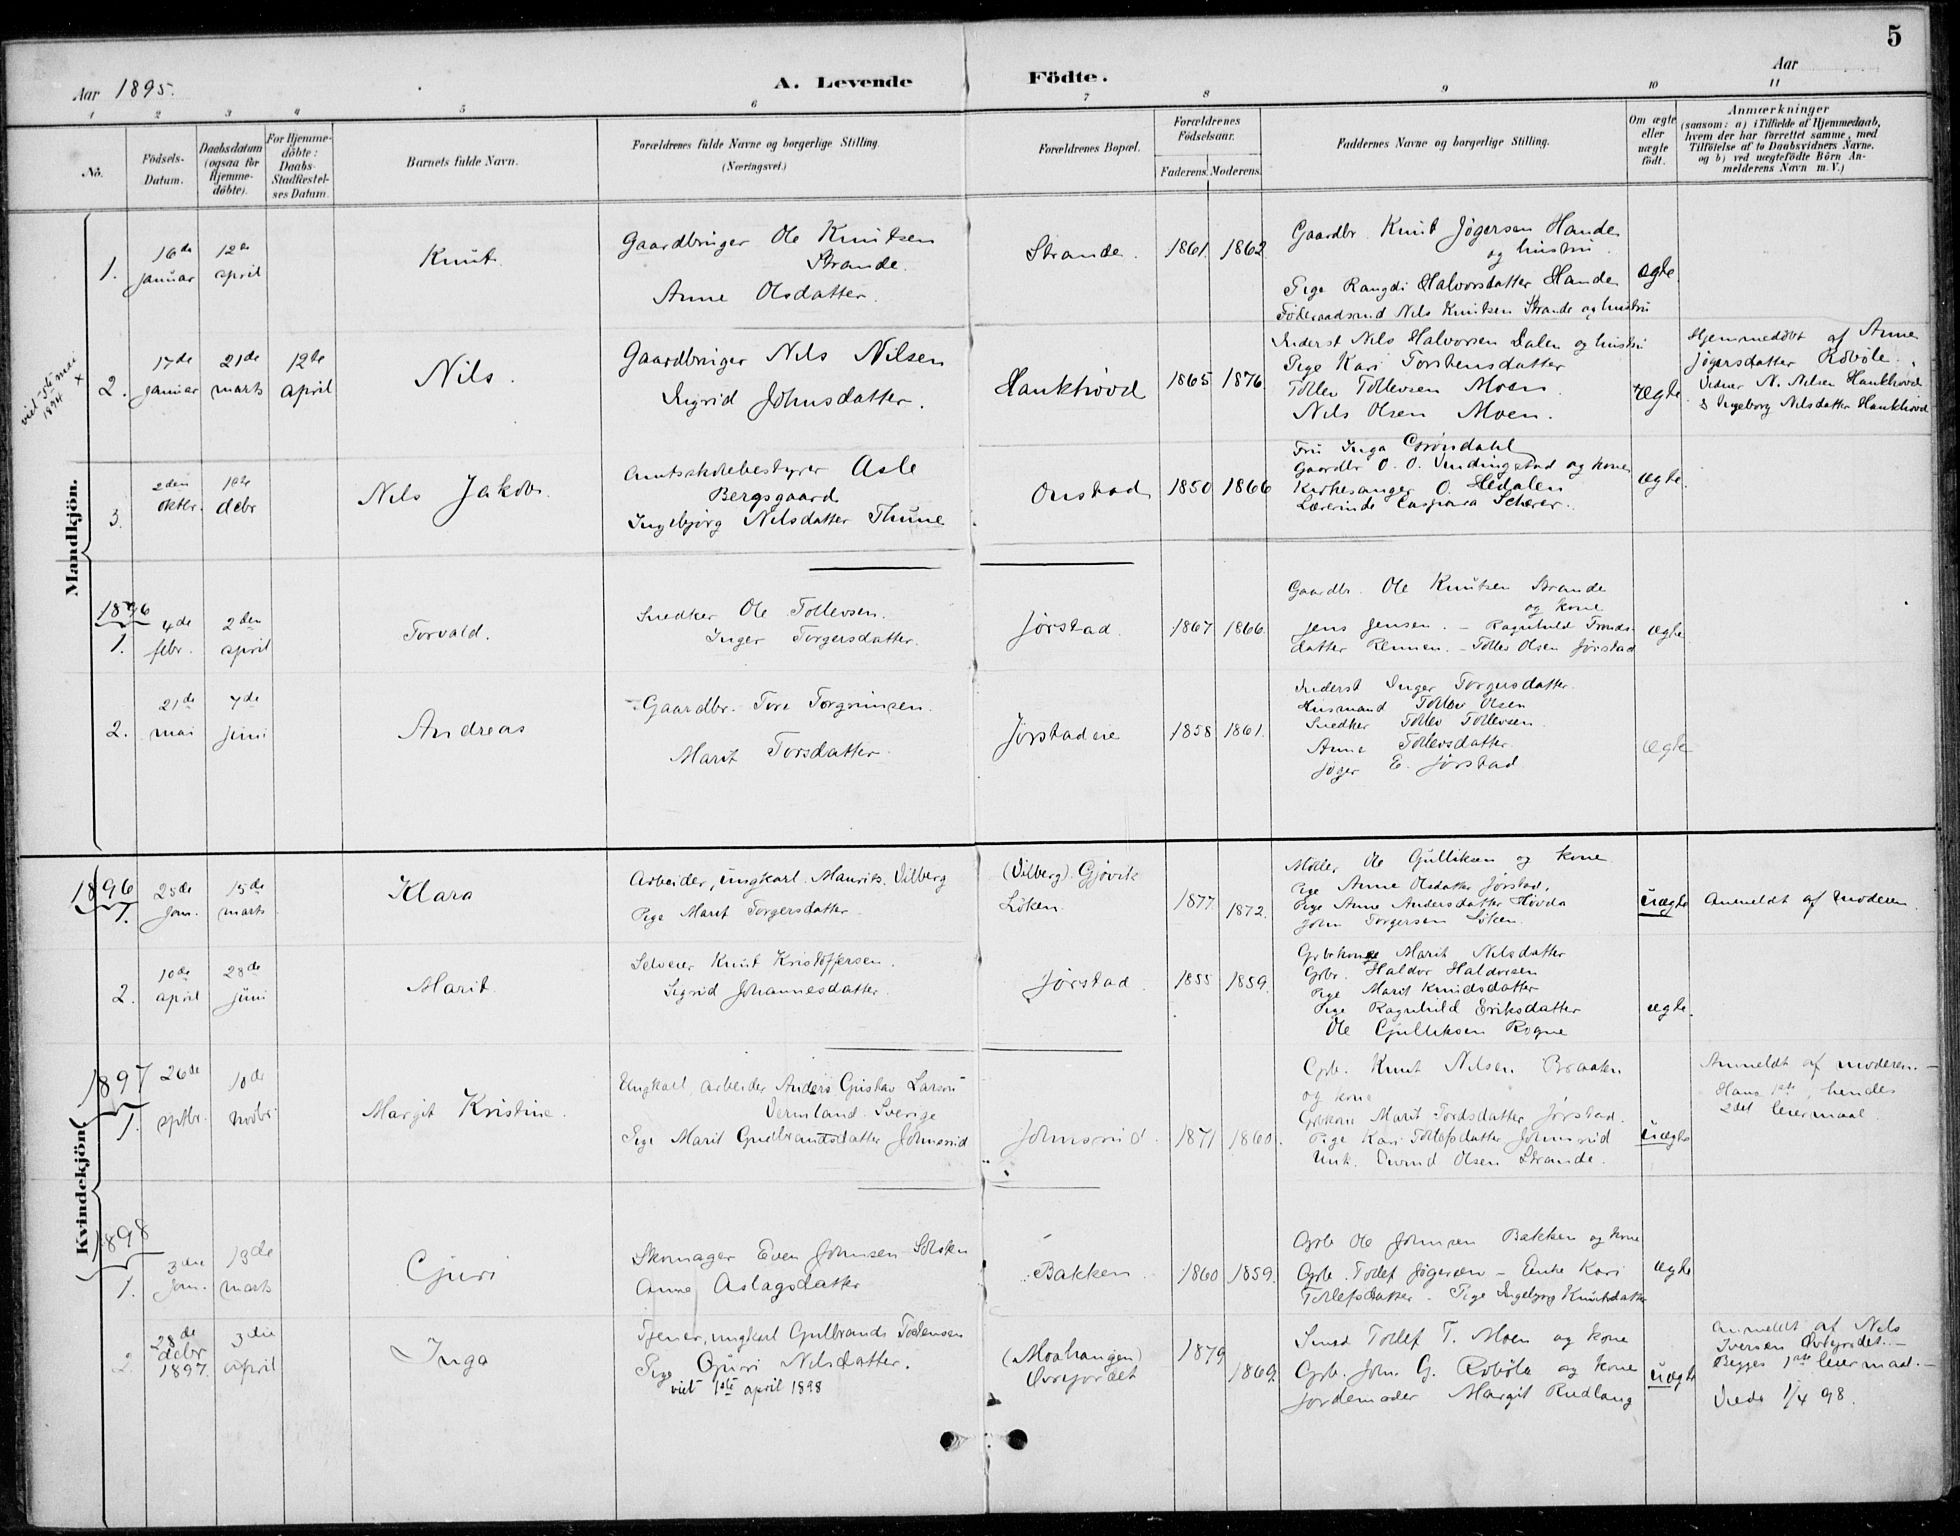 5
Aar 1895.
A. Levende Födte.
Aar
1 2 3 4 5 6 7 8 9 10 11
No.
Födsels-Datum.
Daabsdatum (ogsaa for Hjemme-döbte).
For Hjemme-döbte: Daabs-Stadfæstel-ses Datum.
Barnets fulde Navn.
Forældrenes fulde Navne og borgerlige Stilling.
(Næringsvei.)
Forældrenes Bopæl.
Forældrenes Födselsaar.
Faderens. Moderens.
Faddernes Navne og borgerlige Stilling.
Om ægte eller uægte födt.
Anmærkninger
(saasom: a) i Tilfælde af Hjemmedaab,
hvem der har forrettet samme, med
Tilföielse af to Daabsvidners Navne.
og b) ved uægtefödte Börn An-
melderens Navn m. V.)
Mandkjön.
1. 16de januar 12te april
Knut.
Gaardbruger Ole Knutsen
Strande.
Anne Olsdatter.
Strande. 1861. 1862
Gaardbr. Knut Jøgersen Hande
og hustru
Pige Rangdi Halvorsdatter Hande
Føderaadsmd Nils Knutsen Strande og hustru
ægte
viet 5te mai 1894 x
2. 17de januar 21de marts 12te april
Nils.
Gaardbruger Nils Nilsen
Ingrid Johnsdatter.
Haukhövd 1865 1876
Inderst Nils Halvorsen Dalen og hustru
Pige Kari Torstensdatter
Tollev Tollevsen Moen.
Nils Olsen Moen.
ægte
Hjemmedöbt af Anne
Jögersdatter Robøle.
Vidner N. Nilsen Haukhövd
& Ingeborg Nilsdatter Haukhövd
3. 2den oktbr. 1ste debr
Nils Jakob.
Amtsskolebestyrer Asle
Bergsgaard
Ingebjørg Nilsdatter Thune
Onstad 1850 1866
Fru Inga Grøndahl
Gaardbr O. O. Vindingstad og kone
Kirkesanger O. Hedalen
Lærerinde Caspara Scherer.
ægte.
1896
1. 4de febr. 2den april
Torvald.
Snedker Ole Tollevsen.
Inger Torgersdatter.
Jørstad. 1867 1866.
Gaardbr. Ole Knutsen Strande
og kone
Jens Jensen. – Ragnhild Tronds-
datter Rennen. – Tollev Olsen Jørstad
ægte
2. 21de mai 7de juni
Andreas
Gaardbr. Tore Torgrimsen.
Marit Torsdatter.
Jørstadeie 1858 1861.
Inderst Inger Torgersdatter.
Husmand Tollev Olsen
Snedker Tollev Tollevsen.
Anne Tollevsdatter.
Jøger E. Jørstad
ægte
Kvindekjön
1896
1. 25de jan. 15de marts
Klara
Arbeider, ungkarl. Maurits. Vilberg
Pige Marit Torgersdatter.
(Vilberg). Gjøvik
Løken. 1877. 1872.
Møller Ole Gulliksen og kone
Pige Anne Olsdatter Jørstad.
Pige Anne Andersdatter Høvda
John Torgersen Løken.
uægte Anmeldt af moderen.
2. 10de april 28de juni
Marit
Selveier Knut Kristoffersen.
Sigrid Johannesdatter.
Jørstad. 1855 1859.
Grbrkone Marit Nilsdatter
Grbr. Haldor Haldorsen
Pige Marit Knudsdatter
Pige Ragnhild Eriksdatter
Ole Gulliksen Rogne
ægte.
1897
1. 26de sptbr. 10de novbr.
Margit Kristine.
Ungkarl arbeider Anders Gustav Larson
Vermland. Sverige
Pige Marit Gudbrandsdatter Johnsrud
Johnsrud. 1871 1860.
Grb. Knut Nilsen Braaten
og kone
Grbkone Marit Tordsdatter Jørstad.
Pige Kari Tollefsdatter Johnsrud
Unk. Evind Olsen Strande.
uægte
Anmeldt af moderen. –
Hans 1ste, hendes
2det leiermaal
1898
1. 3die jan. 13de marts
Guri
Skomager Even Johnsen
Anne Aslagsdatter
Bakken. 1860 1859.
Grb Ole Johnsen Bakken og kone
Grb. Tollef Jøgersen – Enke Kari
Tollefsdatter – Pige Ingeborg Knutsdatter
ægte
2. 28de debr 1897. 3die april
Inga
Tjener, ungkarl Gulbrands Tostensen
Pige Guri Nilsdatter.
viet 1ste april 1898
(Moahaugen)
Øvrejordet 1879 1869.
Smed Tollef T. Moen og kone
Grb. John G. Robøle og kone
Jordemoder Margit Rudlang
uægte
Anmeldt af Nils
Iversen Øvrejordet. –
Begges 1ste leiermaal. –
Viede 1/4 98.